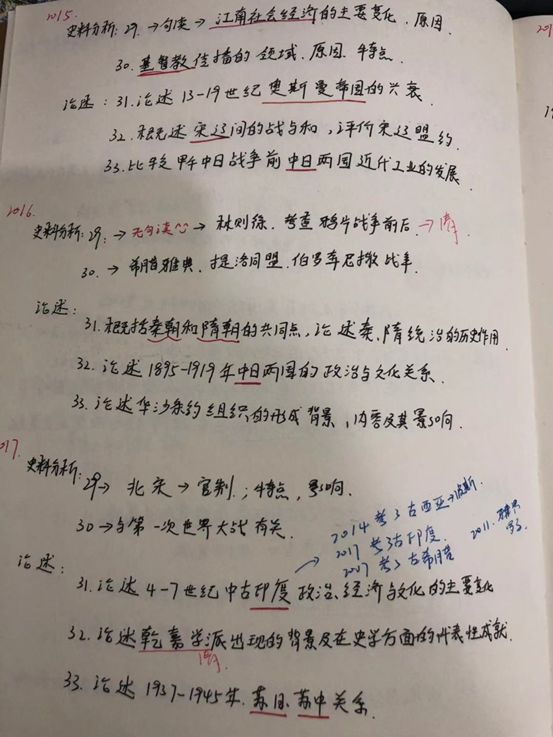 2015.
史料分析: 29. → 句读 → 江南社会经济的主要变化, 原因.
30. 基督教传播的领域. 原因. 特点.
论述: 31. 论述 13-19世纪奥斯曼帝国的兴衰.
32. 概述宋辽间的战与和, 评价宋辽盟约.
33. 比较甲午中日战争前中日两国近代工业的发展.
2016.
史料分析: 29. → 无句读 → 林则徐. 考查鸦片战争前后. → 清
30. → 希腊雅典. 提洛同盟. 伯罗奔尼撒战争.
论述:
31. 概括秦朝和隋朝的共同点, 论述秦、隋统治的历史作用.
32. 论述 1895-1919年中日两国的政治与文化关系.
33. 论述华沙条约组织的形成背景, 内容及其影响.
17.
史料分析: 29 → 北宋 → 官制.; 特点, 影响.
30 → 与第一次世界大战有关.
2014 考了古西亚→波斯.
2017 考了古印度.
考了古希腊
2011.
论述:
31. 论述 4-7世纪中古印度政治、经济与文化的主要变化
32. 论述乾嘉学派出现的背景及在史学方面的代表性成就.
清
33. 论述 1937-1945年. 苏日、苏中关系.